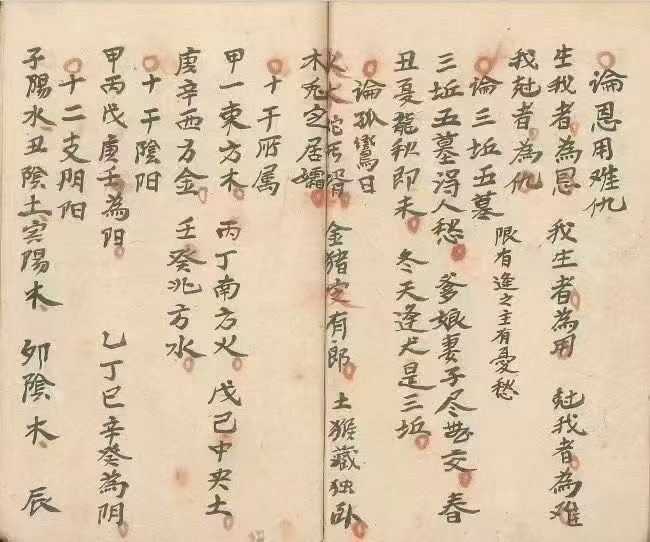 論恩用难仇
生我者為恩 我生者為用 尅我者為难
我尅者為仇
論三坵五墓 限有逢之主有憂愁
三坵五墓浔人愁 爹娘妻子尽無交 春
丑夏龍秋即未 冬天逢犬是三坵
論孤鸞日
火 蛇 金猪定有郎 土猴藏独卧
木兎定居孀
十干所属
甲一東方木 丙丁南方火 戊己中央土
庚辛西方金 壬癸北方水
十干陰阳
甲丙戊庚壬為阳 乙丁巳辛癸為阴
十二支阴阳
子陽水 丑陰土 寅陽木 卯陰木 辰